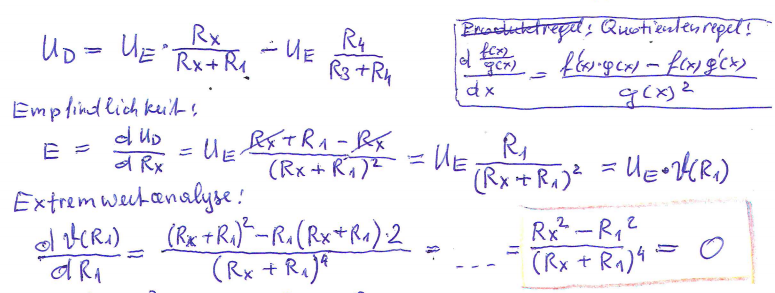 U_D = U_E · Rx / (Rx + R1) − U_E R4 / (R3 + R4)
Produktregel: Quotientenregel:
d (f(x) / g(x)) / dx = (f'(x)·g(x) − f(x) g'(x)) / g(x)²
Empfindlichkeit:
E = dU_D / dRx = U_E (Rx + R1 − Rx) / (Rx + R1)² = U_E R1 / (Rx + R1)² = U_E · ϑ(R1)
Extremwertanalyse:
dϑ(R1) / dR1 = ((Rx + R1)² − R1 (Rx + R1)·2) / (Rx + R1)⁴ = ... = (Rx² − R1²) / (Rx + R1)⁴ = 0